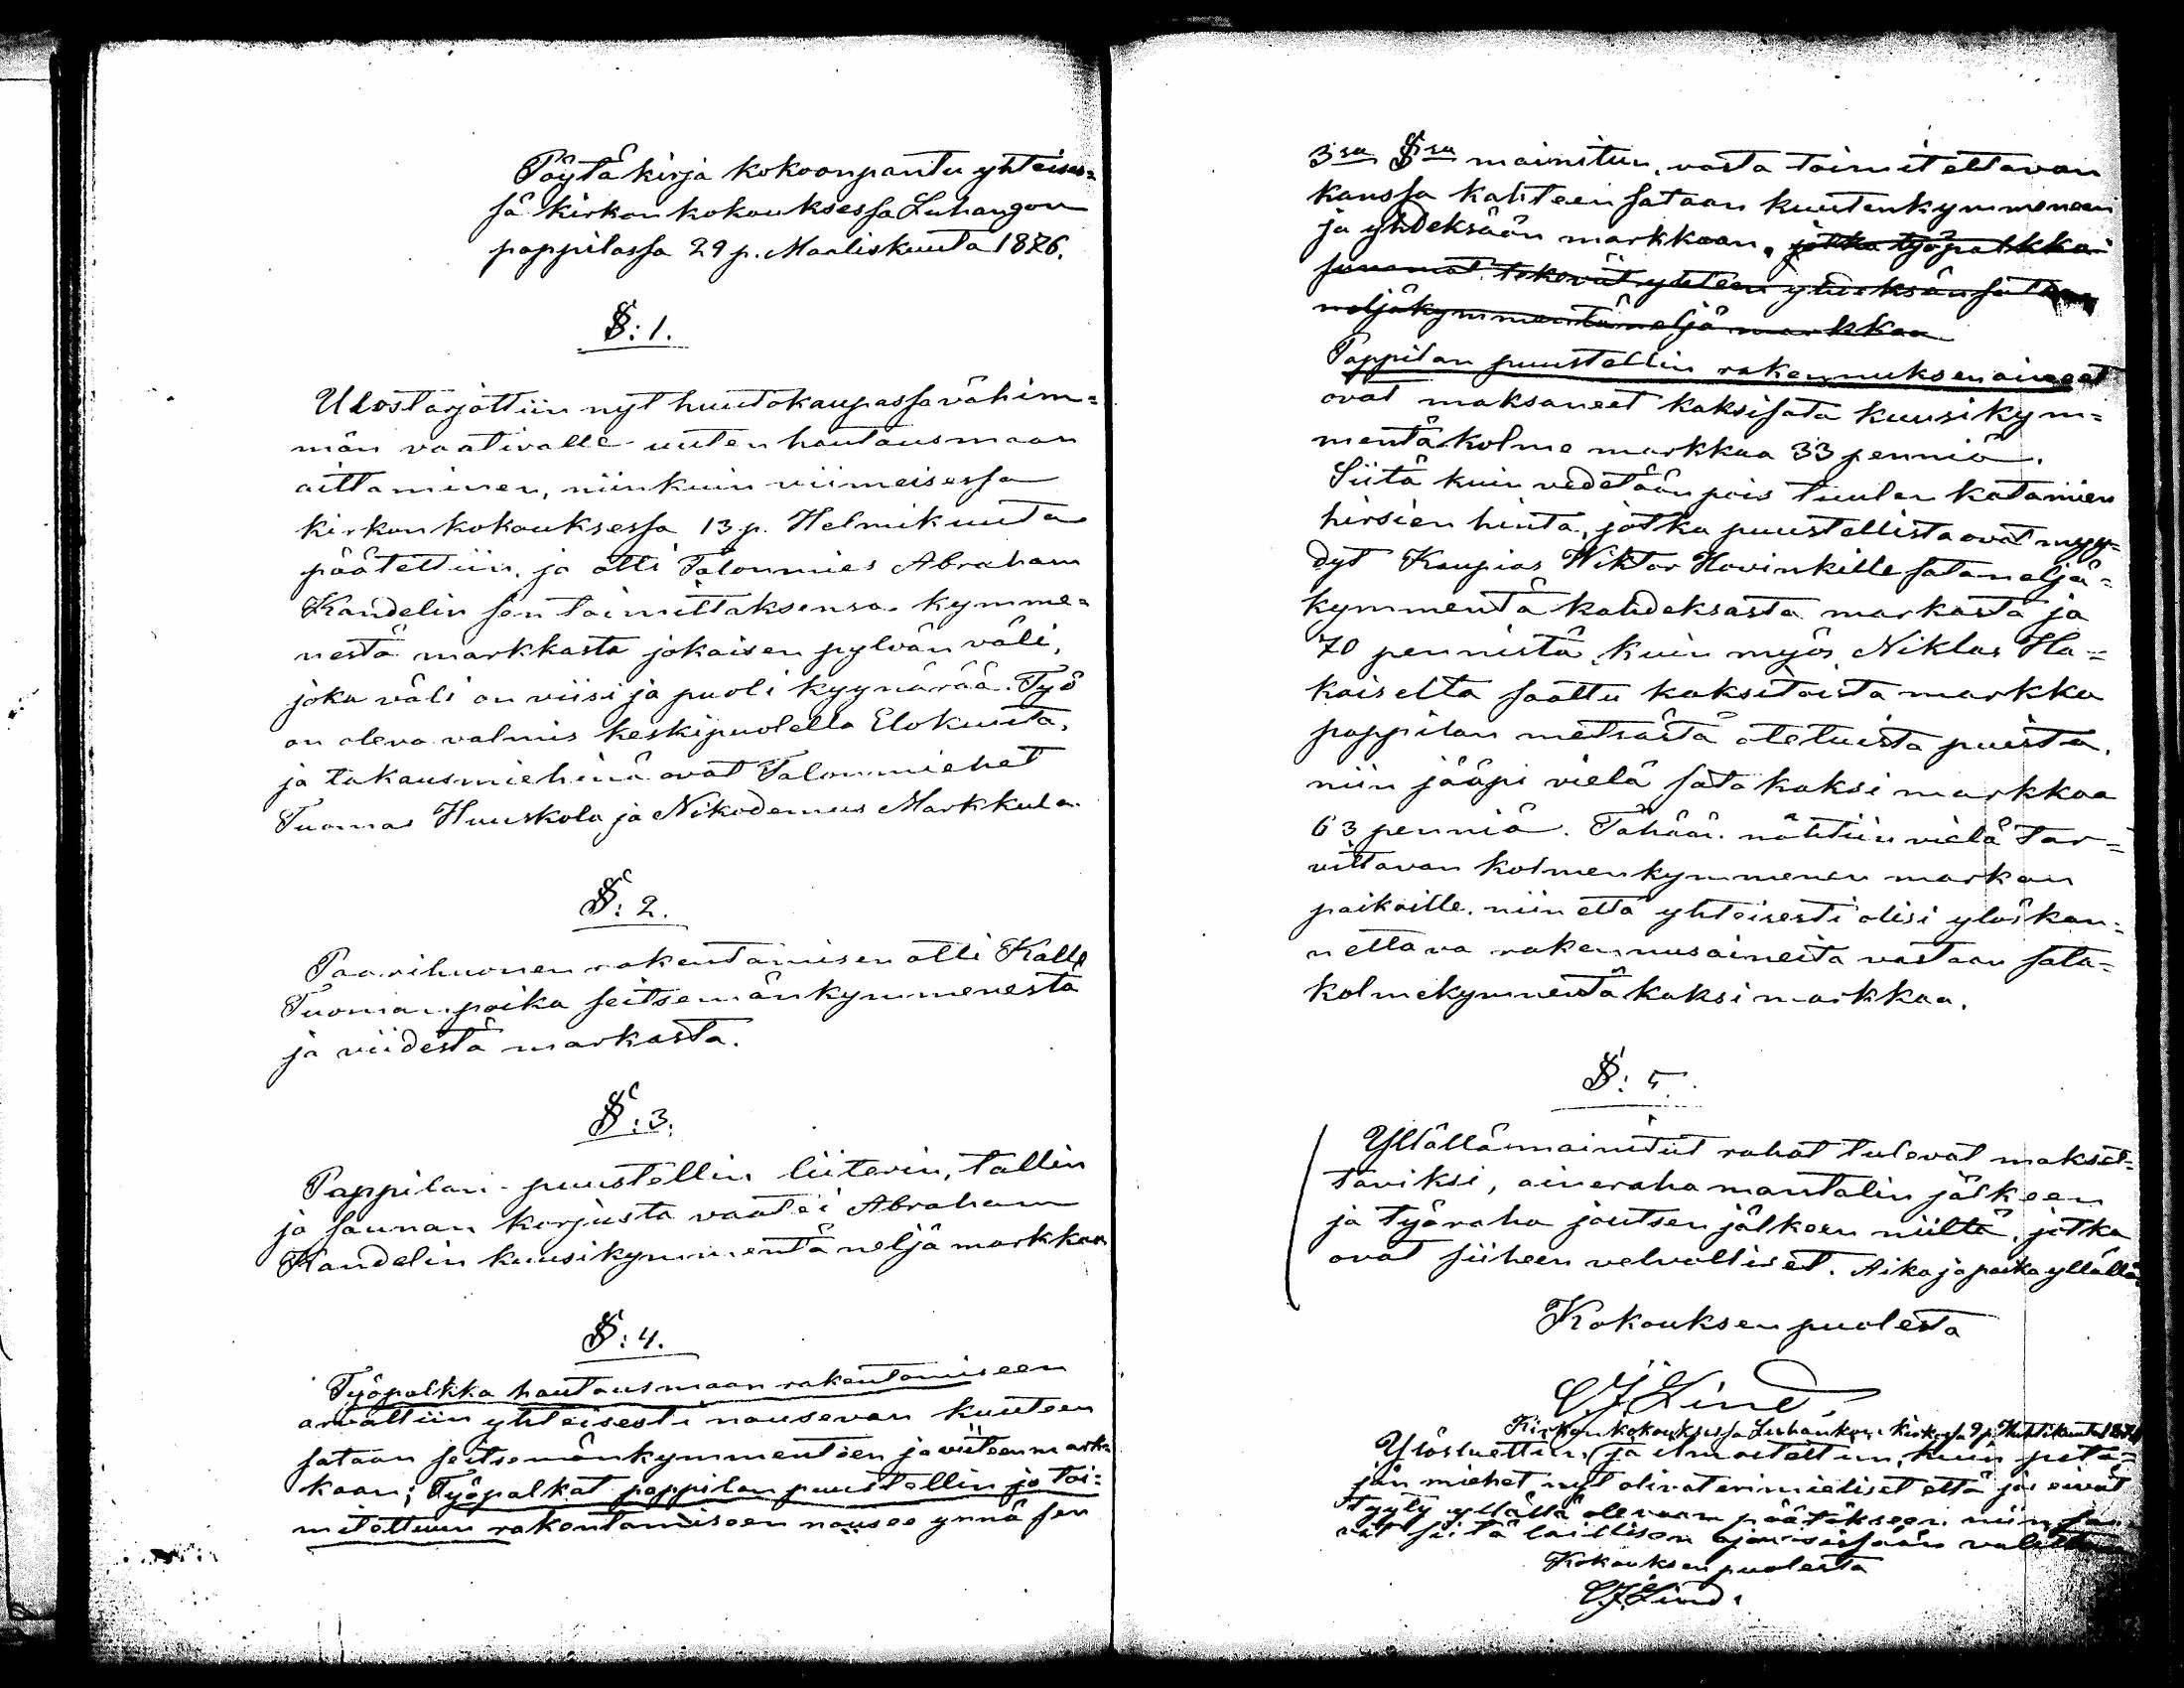 Pöytäkirja kokoonpantu yhteises=
sä kirkon kokouksessa Luhangon
pappilassa 29 p. Maaliskuuta 1876.
§: 1.
Ulostarjottiin nyt huutokaupassa vähim=
män vaativalle uuten hautausmaan
aittaminen, niinkuin viimeisessa
kirkonkokouksessa 13 p. Helmikuuta
päätettiin, ja otti Talonmies Abraham
Kandelin sen toimittaksensa kymme=
nestä markkasta jokaisen pylvän väli,
joka väli on viisi ja puoli kyynärää. Työ
on oleva valmis keskipuolella Elokuuta,
ja takausmiehinä ovat Talonmiehet
Tuomas Huuskola ja Nikodemus Markkula.
§: 2.
Paarihuonen rakentamisen otti Kalle
Tuomanpoika seitsemänkymmenestä
ja viidestä markasta.
§: 3.
Pappilan puustellin liiterin, tallin
ja saunan korjusta vaatei Abraham
Kandelin kuusikymmentä neljä markkaa
§: 4.
Työpalkka hautausmaan rakentamiseen
arvattiin yhteisesti nousevan kuuteen
sataan seitsemänkymmentöen ja viiteen mark=
kaan; Työpalkat pappilan puustellin jo toi=
mitettuun rakentamiseen nousee ynnä sen
3sa §sa mainitun, vasta toimitettavan
kanssa kahteen sataan kuutenkymmeneen
ja yhdeksään markkaan, jotka työpalkka
summat tekevät yhteen yhdeksänsataa
neljäkymmentäneljä markkaa
Pappilan puustellin rakennuksen aineeat
ovat maksaneet kaksisata kuusikym=
mentä kolme markkaa 33 penniä.
Siitä kuin vedetään pois tuulen katamien
hirsien hinta, jotka puustellista ovat myy=
dyt Kaupias Wiktor Hovinkille sataneljä=
kymmentä kahdeksasta markasta ja
70 pennistä, kuin myös Niklas Ha=
kaiselta saattu kaksitoista markka
pappilan metsästä otetuista puista,
niin jääpi vielä sata kaksi markkaa
63 penniä. Tähän nähtiin vielä tar=
vittavan kolmenkymmenen markan
paikoille, niin että yhteisesti olisi ylöskan=
nettava rakennusaineita vastaan sata=
kolmekymmentä kaksi markkaa.
§: 5.
Yllällämainitut rahat tulevat makset=
taviksi, aineraha mantalin jälkeen
ja työraha joutsen jälkeen niiltä, jotka
ovat siiheen velvolliset. Aika ja paika yllällä
Kokouksen puolesta
C J Lind.
Kirkonkokouksessa Luhankon kirkossa 9 p. Huhtikuuta
Ylösluettiin ja ilmoitettiin, kuin pitä=
jän miehet nyt olivat erimieliset että jos eivät
tyyty yllällä olevaan päätökseen niin
vat siitä laillisen ajan sissään valittaa
Kokouksen puolesta
C J Lind.